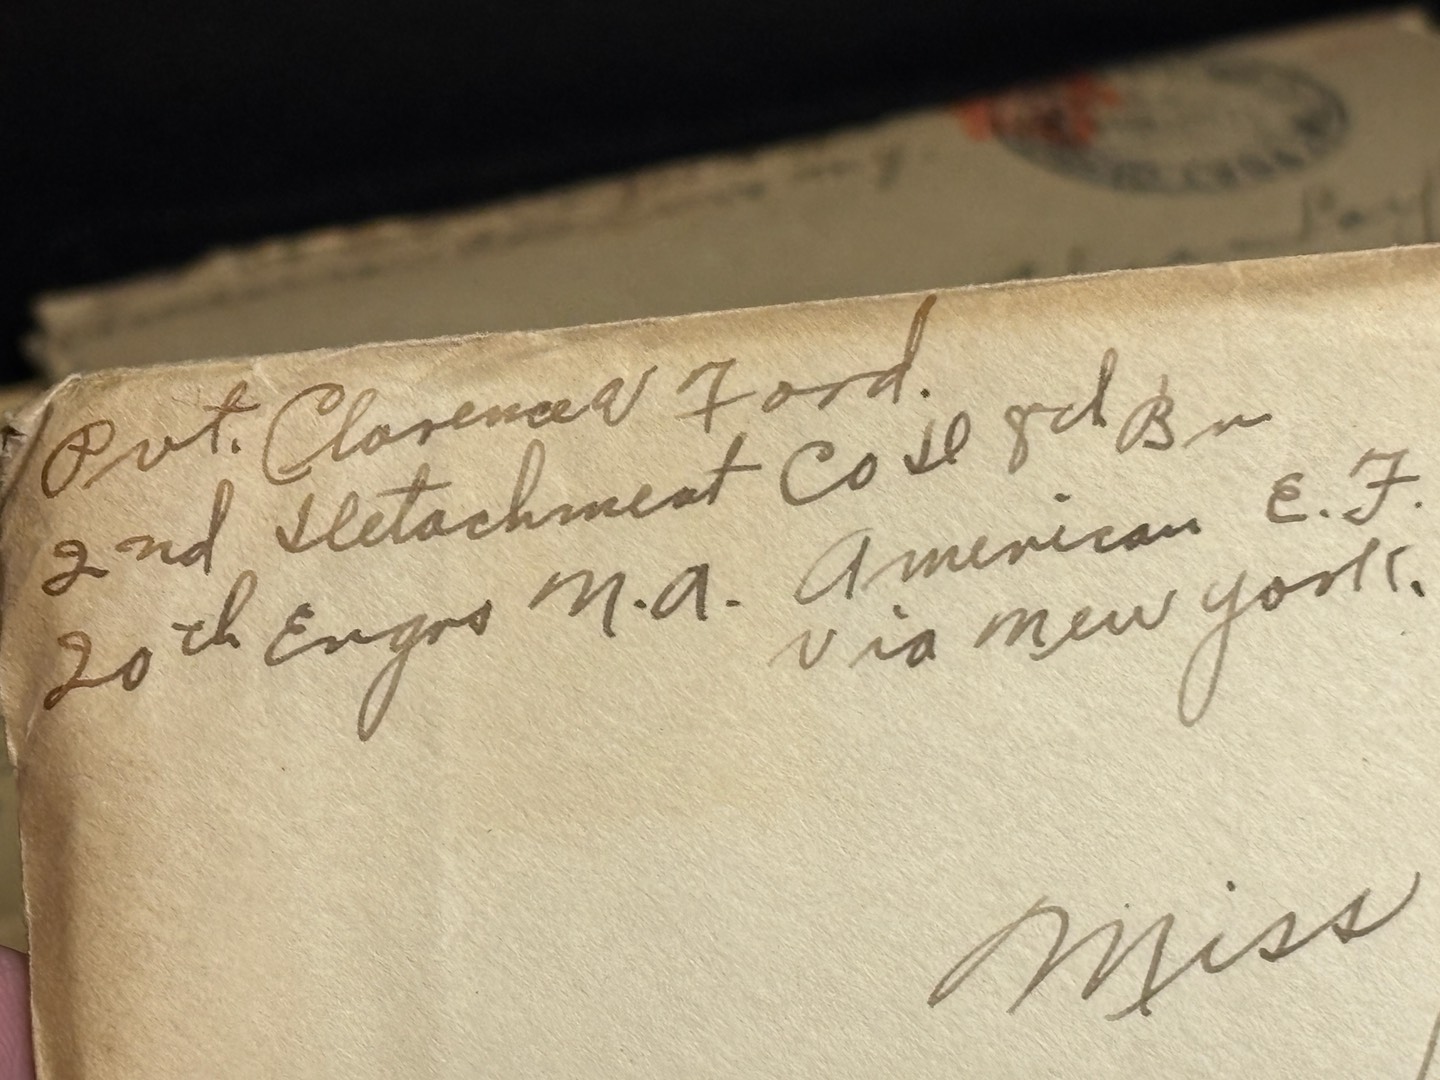 Pvt. Clarence V Ford.
2nd Detachment Co D 8rd Bn
20th Engrs N.A. American E.F.
via New York.
Miss